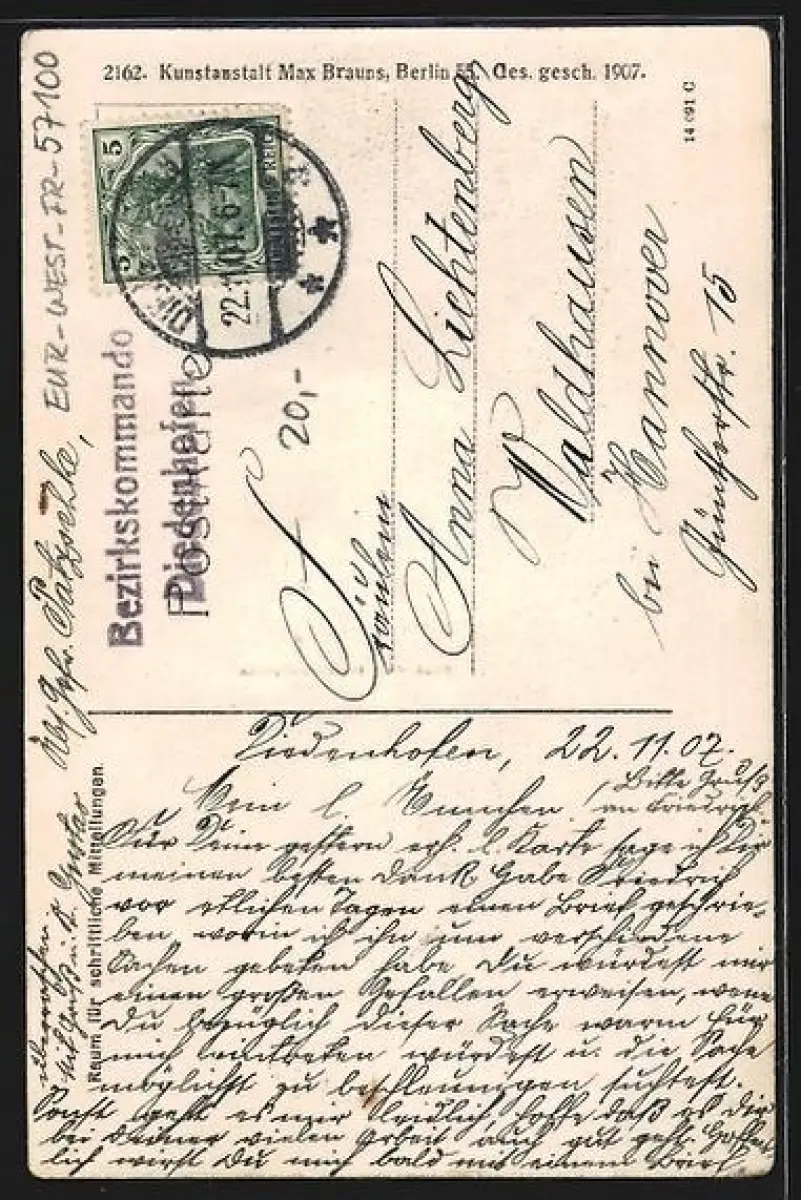 2162. Kunstanstalt Max Brauns, Berlin 55. Ges. gesch. 1907.
14 091 C
5 5
DEUTSCHES REICH
22.11.07. 6-7N
* *
Bezirkskommando
Diedenhofen
Postkarte
EUR-WEST-FR-57100
20,-
Fräulein
Anna Lichtenberg
Waldhausen
bei Hannover
Güntherstr. 15
Raum für schriftliche Mitteilungen.
Diedenhofen, 22.11.07.
Mein l. Ännchen!
Bitte Gruß
an Friedrich.
Für Deine gestern erh. l. Karte sage ich Dir
meinen besten Dank. Habe Friedrich
vor etlichen Tagen einen Brief geschrie-
ben, worin ich ihn um verschiedene
Sachen gebeten habe. Du würdest mir
einen großen Gefallen erweisen, wenn
Du bezüglich dieser Sache warm für
mich eintreten würdest u. die Sache
möglichst zu beschleunigen suchtest.
Sonst geht es mir leidlich, hoffe daß es Dir
bei Deiner vielen Arbeit auch gut geht. Hoffent-
lich wirst Du mich bald mit einem Brief
überraschen.
Mit Gruß u. K. Gustav
Gefr. Patzschke,